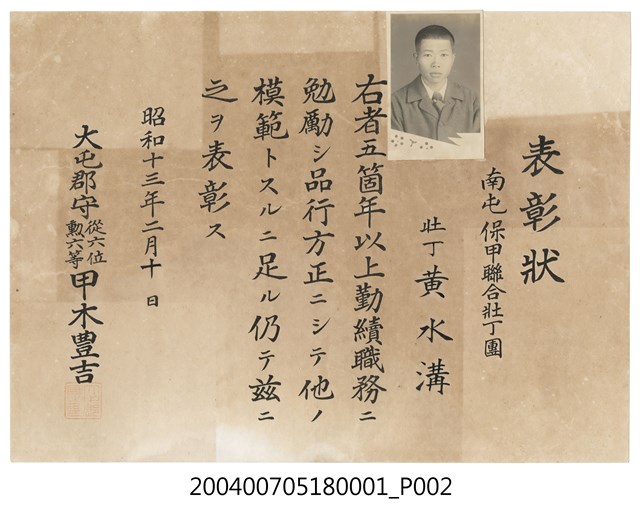 表彰狀
南屯保甲聯合壯丁團
壯丁 黄水溝
右者五箇年以上勤續職務ニ
勉勵シ品行方正ニシテ他ノ
模範トスルニ足ル仍テ茲ニ
之ヲ表彰ス
昭和十三年二月十日
大屯郡守 從六位 勲六等 甲木豊吉
200400705180001_P002